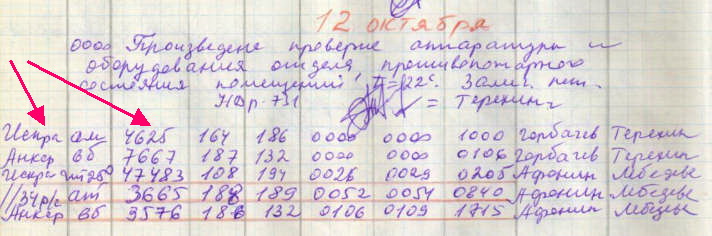 12 октября
0000 Произведена проверка аппаратуры и
оборудования отдела, противопожарного
состояния помещений, T=22°. Замеч. нет.
= Терехин =
Искра ам 4625 164 186 0000 0000 1000 Горбачев Терехин
Анкер вб 7667 187 132 0000 0000 0106 Горбачев Терехин
Искра 47483 108 194 0026 0029 0205 Афонин Лебедев
ат 3665 188 189 0052 0054 0840 Афонин Лебедев
Анкер вб 9576 186 132 0106 0109 1715 Афонин Лебедев